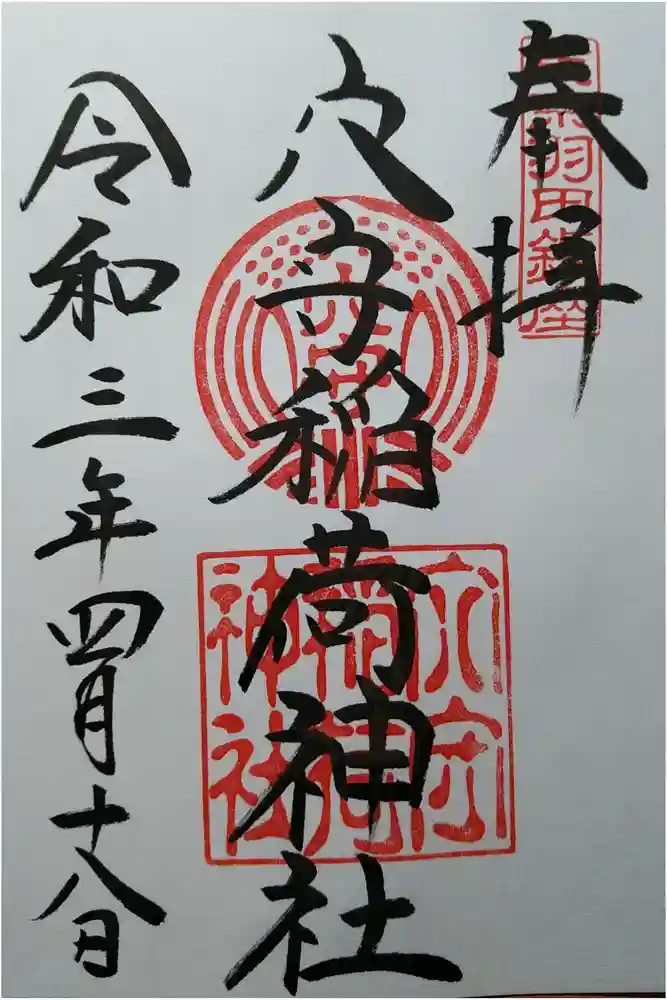 奉拝
東京羽田鎮座
穴守稲荷神社
穴守
稲荷
神社
令和三年四月十八日